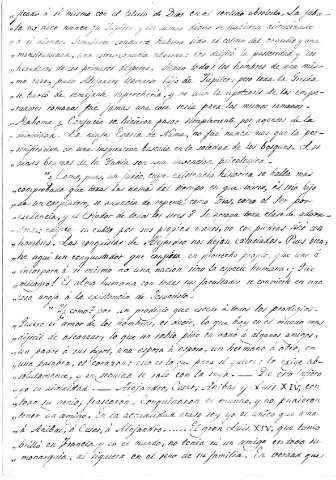 á sí mismo con el título de Dios en el sentido absoluto. La fabu-
la no dice nunca que Júpiter y los otros dioses se
a sí mismos. Semejante conducta hubiera sido el colmo del orgullo y una
monstruosidad, una extravagancia absurda. Los divinizó la posteridad y los
herederos de los primeros déspotas. Siendo todos los hombres de una mis-
ma raza, pudo Alejandro llamarse hijo de Júpiter; pero toda la Grecia
se burló de semejante superchería, y ni aun la apoteosis de los empe-
radores romanos fue jamás una cosa seria para los mismos romanos.
Mahoma y Confucio se hicieron pasar simplemente por agentes de la
divinidad. La ninfa Egeria de Numa, no fue nunca mas que la per-
sonificacion de una inspiracion buscada en la soledad de los bosques. Los
dioses bramas de la India son una invencion psicologica.
"¿Como, pues, un judio, cuya existencia historica se halla mas
comprobada que todas las demas del tiempo en que vivia, el solo hijo
de un carpintero, se anuncia de repente como Dios, como el Ser por
excelencia, y el Criador de todos los seres? Se arroga toda clase de adora-
ciones; su culto por sus propias manos, no con piedras sino con
hombres. Las conquistas de Alejandro nos dejan extasiados. Pues bien,
he aquí un conquistador que confisca en provecho propio, que une é
incorpora á sí mismo no una nacion sino la especie humana. ¡Que
milagro! El alma humana con todas sus facultades se convierte en una
cosa aneja á la existencia de Jesucristo.
"¿Y como? por un prodigio que excede á todos los prodigios.
Quiere el amor de los hombres, es decir, lo que hay en el mundo mas
dificil de alcanzar; lo que un sabio pide en vano á algunos amigos,
un padre á sus hijos, una esposa á esposo, un hermano á otro, en
una palabra, el corazon: eso es lo que para sí quiere; lo exige ab-
solutamente, y en seguida se sale con la suya. — De esto infiero
yo su divinidad. — Alejandro, Cesar, Anibal y Luis XIV, con
todo su genio, fracasaron. Conquistaron el mundo, y no pudieron
tener un amigo. En la actualidad acaso soy yo el unico que ama
á Anibal, á Cesar, á Alejandro..... El gran Luis XIV, que tanto
brilló en Francia y en el mundo, no tenia ni un amigo en toda su
monarquía, ni siquiera en el seno de su familia. Es verdad que